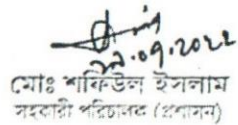 ২৯.০৭.২০২২
মোঃ শফিউল ইসলাম
সহকারী পরিচালক (প্রশাসন)